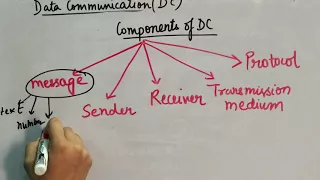 Data Communication (DC)
Components of DC
message
Sender
Receiver
Transmission
medium
Protocol
text
number